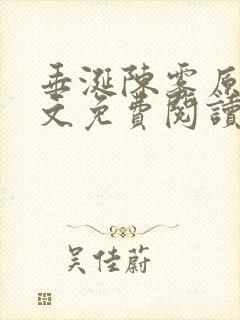 垂涎陳雾原
文免費閱讀
吴佳蔚